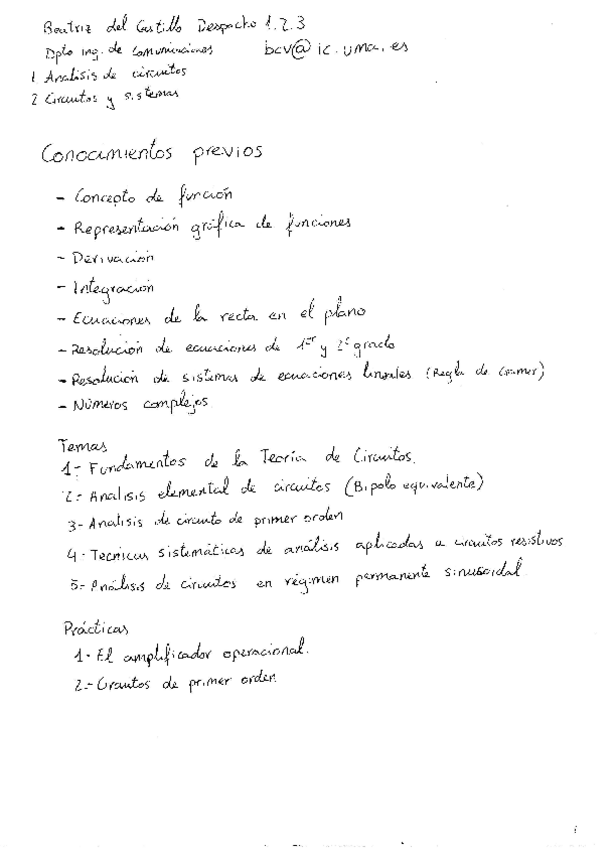 Beatriz del Castillo Despacho 1.2.3
Dpto ing. de comunicaciones bcv@ic.uma.es
1 Analisis de circuitos
2 Circuitos y sistemas
Conocimientos previos
- Concepto de función
- Representación gráfica de funciones
- Derivación
- Integración
- Ecuaciones de la recta en el plano
- Resolución de ecuaciones de 1er y 2º grado
- Resolución de sistemas de ecuaciones lineales (Regla de Cramer)
- Números complejos
Temas
1- Fundamentos de la Teoría de Circuitos.
2- Analisis elemental de circuitos (Bipolo equivalente)
3- Analisis de circuito de primer orden
4- Tecnicas sistemáticas de análisis aplicadas a circuitos resistivos
5- Análisis de circuitos en régimen permanente sinusoidal
Prácticas
1- El amplificador operacional.
2- Circuitos de primer orden